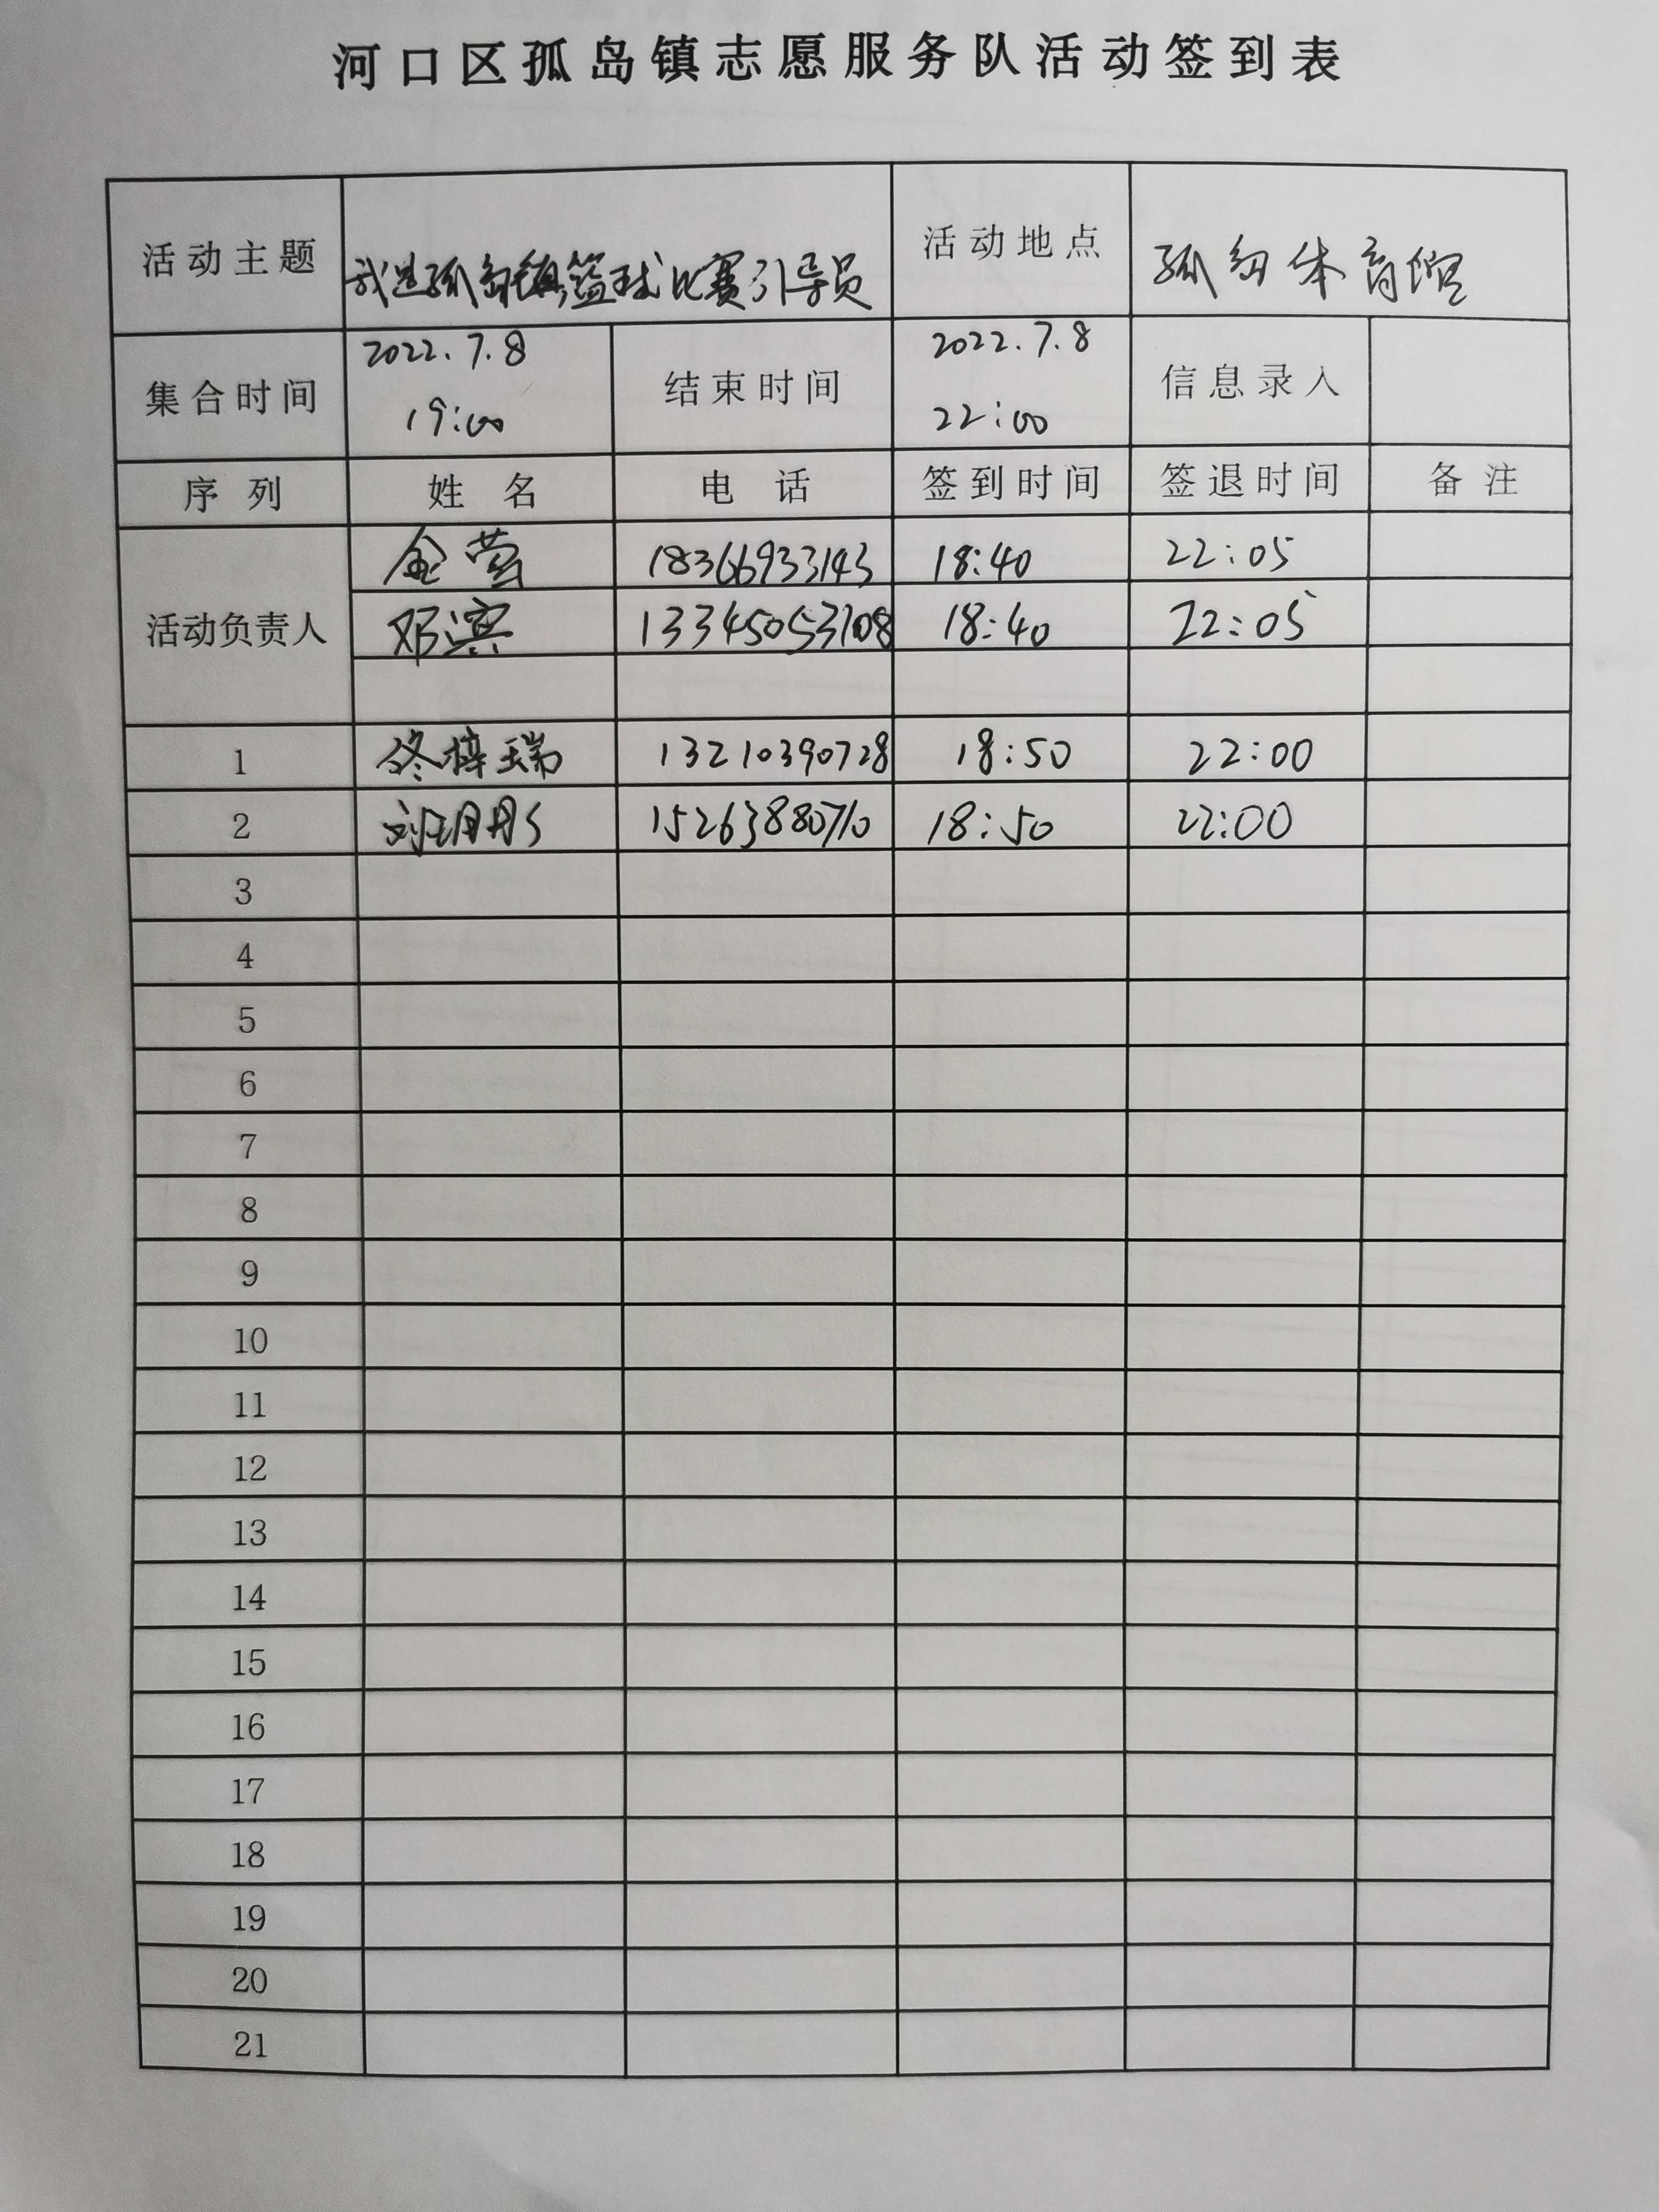 河口区孤岛镇志愿服务队活动签到表
活动主题 我是孤岛镇篮球比赛引导员 活动地点 孤岛体育馆
集合时间 2022.7.8 19:00 结束时间 2022.7.8 22:00 信息录入
序列 姓名 电话 签到时间 签退时间 备注
活动负责人
金莹 18366933143 18:40 22:05
邓滨 13345053708 18:40 22:05
1 佟梓瑞 13210390728 18:50 22:00
2 15263880710 18:50 22:00
3
4
5
6
7
8
9
10
11
12
13
14
15
16
17
18
19
20
21